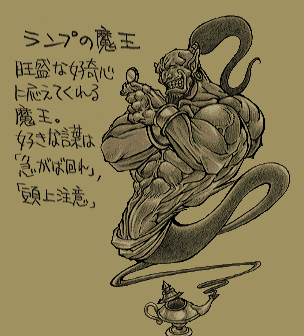 ランプの魔王
旺盛な好奇心
に応えてくれる
魔王。
好きな言葉は
「急がば回れ」,
「頭上注意」